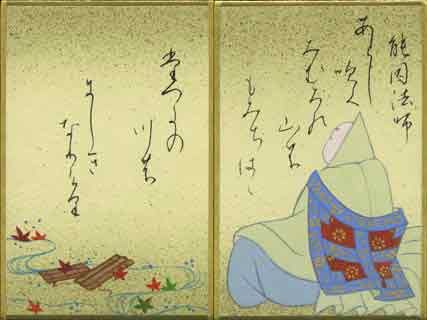 能因法師
あらし
吹く
みむろの
山の
もみちはゝ
たつたの
川の
にしき
なりけり